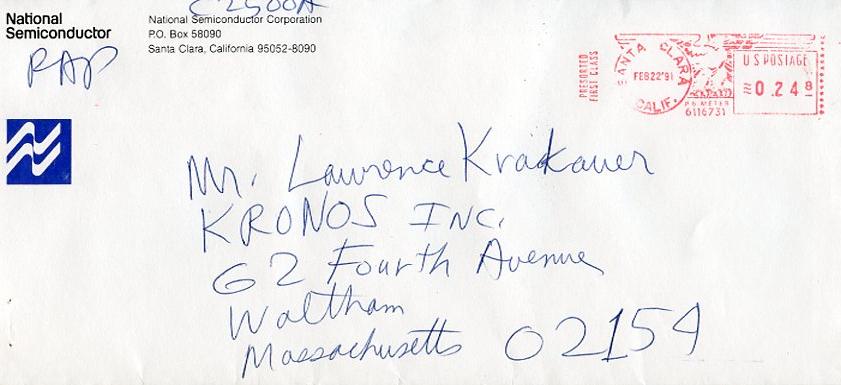 C2500A
National
Semiconductor
National Semiconductor Corporation
P.O. Box 58090
Santa Clara, California 95052-8090
RAP
PRESORTED
FIRST CLASS
SANTA CLARA
FEB22'91
CALIF.
P.B. METER
6116731
U.S. POSTAGE
0.24 8
Mr. Lawrence Krakauer
KRONOS INC.
62 Fourth Avenue
Waltham
Massachusetts 02154